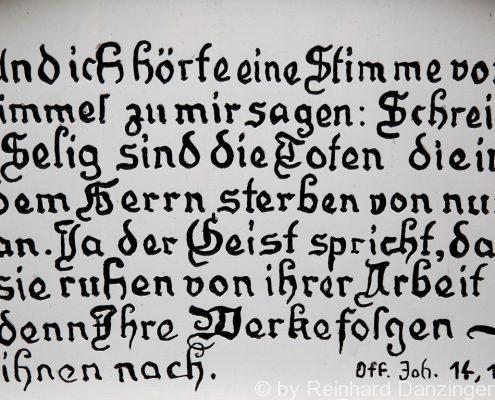 und ich hörte eine Stimme vo
immel zu mir sagen: Schrei
Selig sind die Toten die in
dem Herrn sterben von nu
an. Ja der Geist spricht, da
sie ruhen von ihrer Arbeit
denn Ihre Werke folgen ~
ihnen nach. Off. Joh. 14, 1
© by Reinhard Danzinger